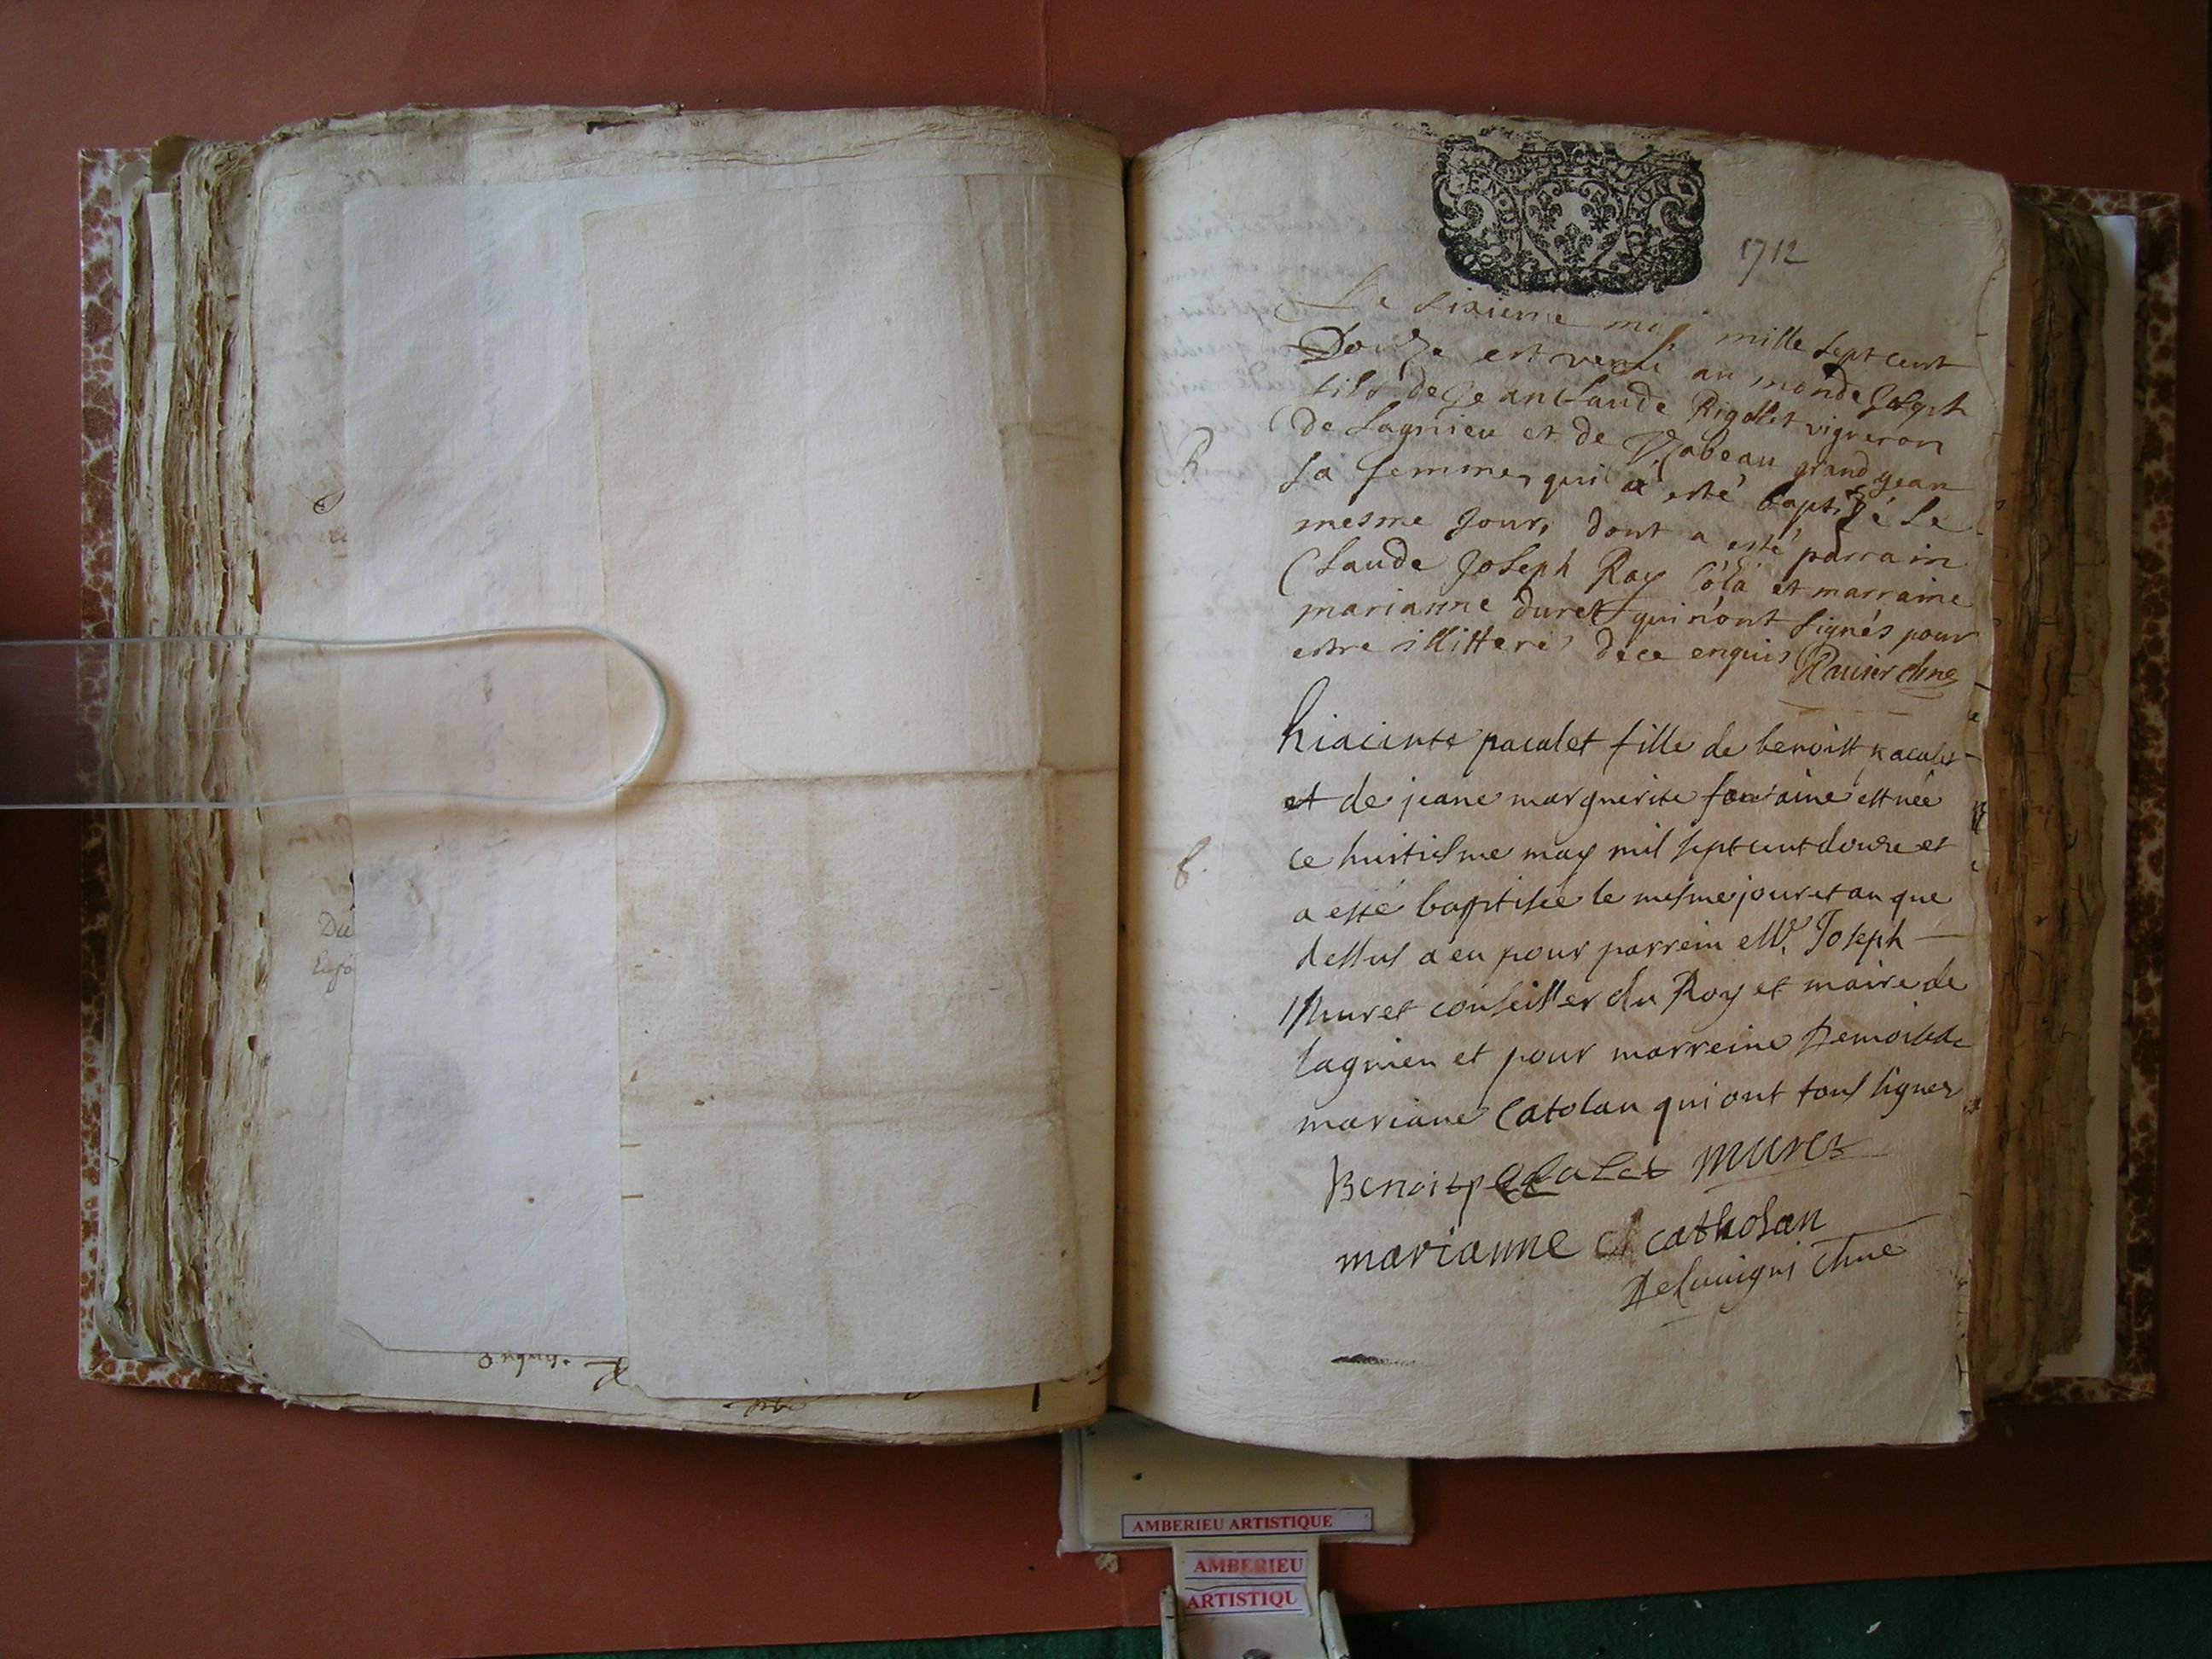 1712
Le sixieme may mille sept cent
Douze est venu au monde Joseph
fils de Jean Claude Rigollet vigneron
de Lagnieu et de Ysabeau grand gean
B.
sa femme, qui a esté baptizé le
mesme Jour, dont a esté parrain
Claude Joseph Ray Cola et marraine
marianne duret qui n'ont signés pour
estre illitteré de ce enquis
hiacinte pacalet fille de benoist pacalet
et de jeane marguerite fontaine est née
ce huitiesme may mil sept cent douze et
B.
a esté baptisée le mesme jour et an que
dessus a eu pour parrein Mr. Joseph
Muret conseiller du Roy et maire de
lagnieu et pour marreine Demoiselle
mariane Catolan qui ont tous signer
Benoit pacalet Muret
marianne catholan
AMBERIEU ARTISTIQUE
AMBERIEU
ARTISTIQU